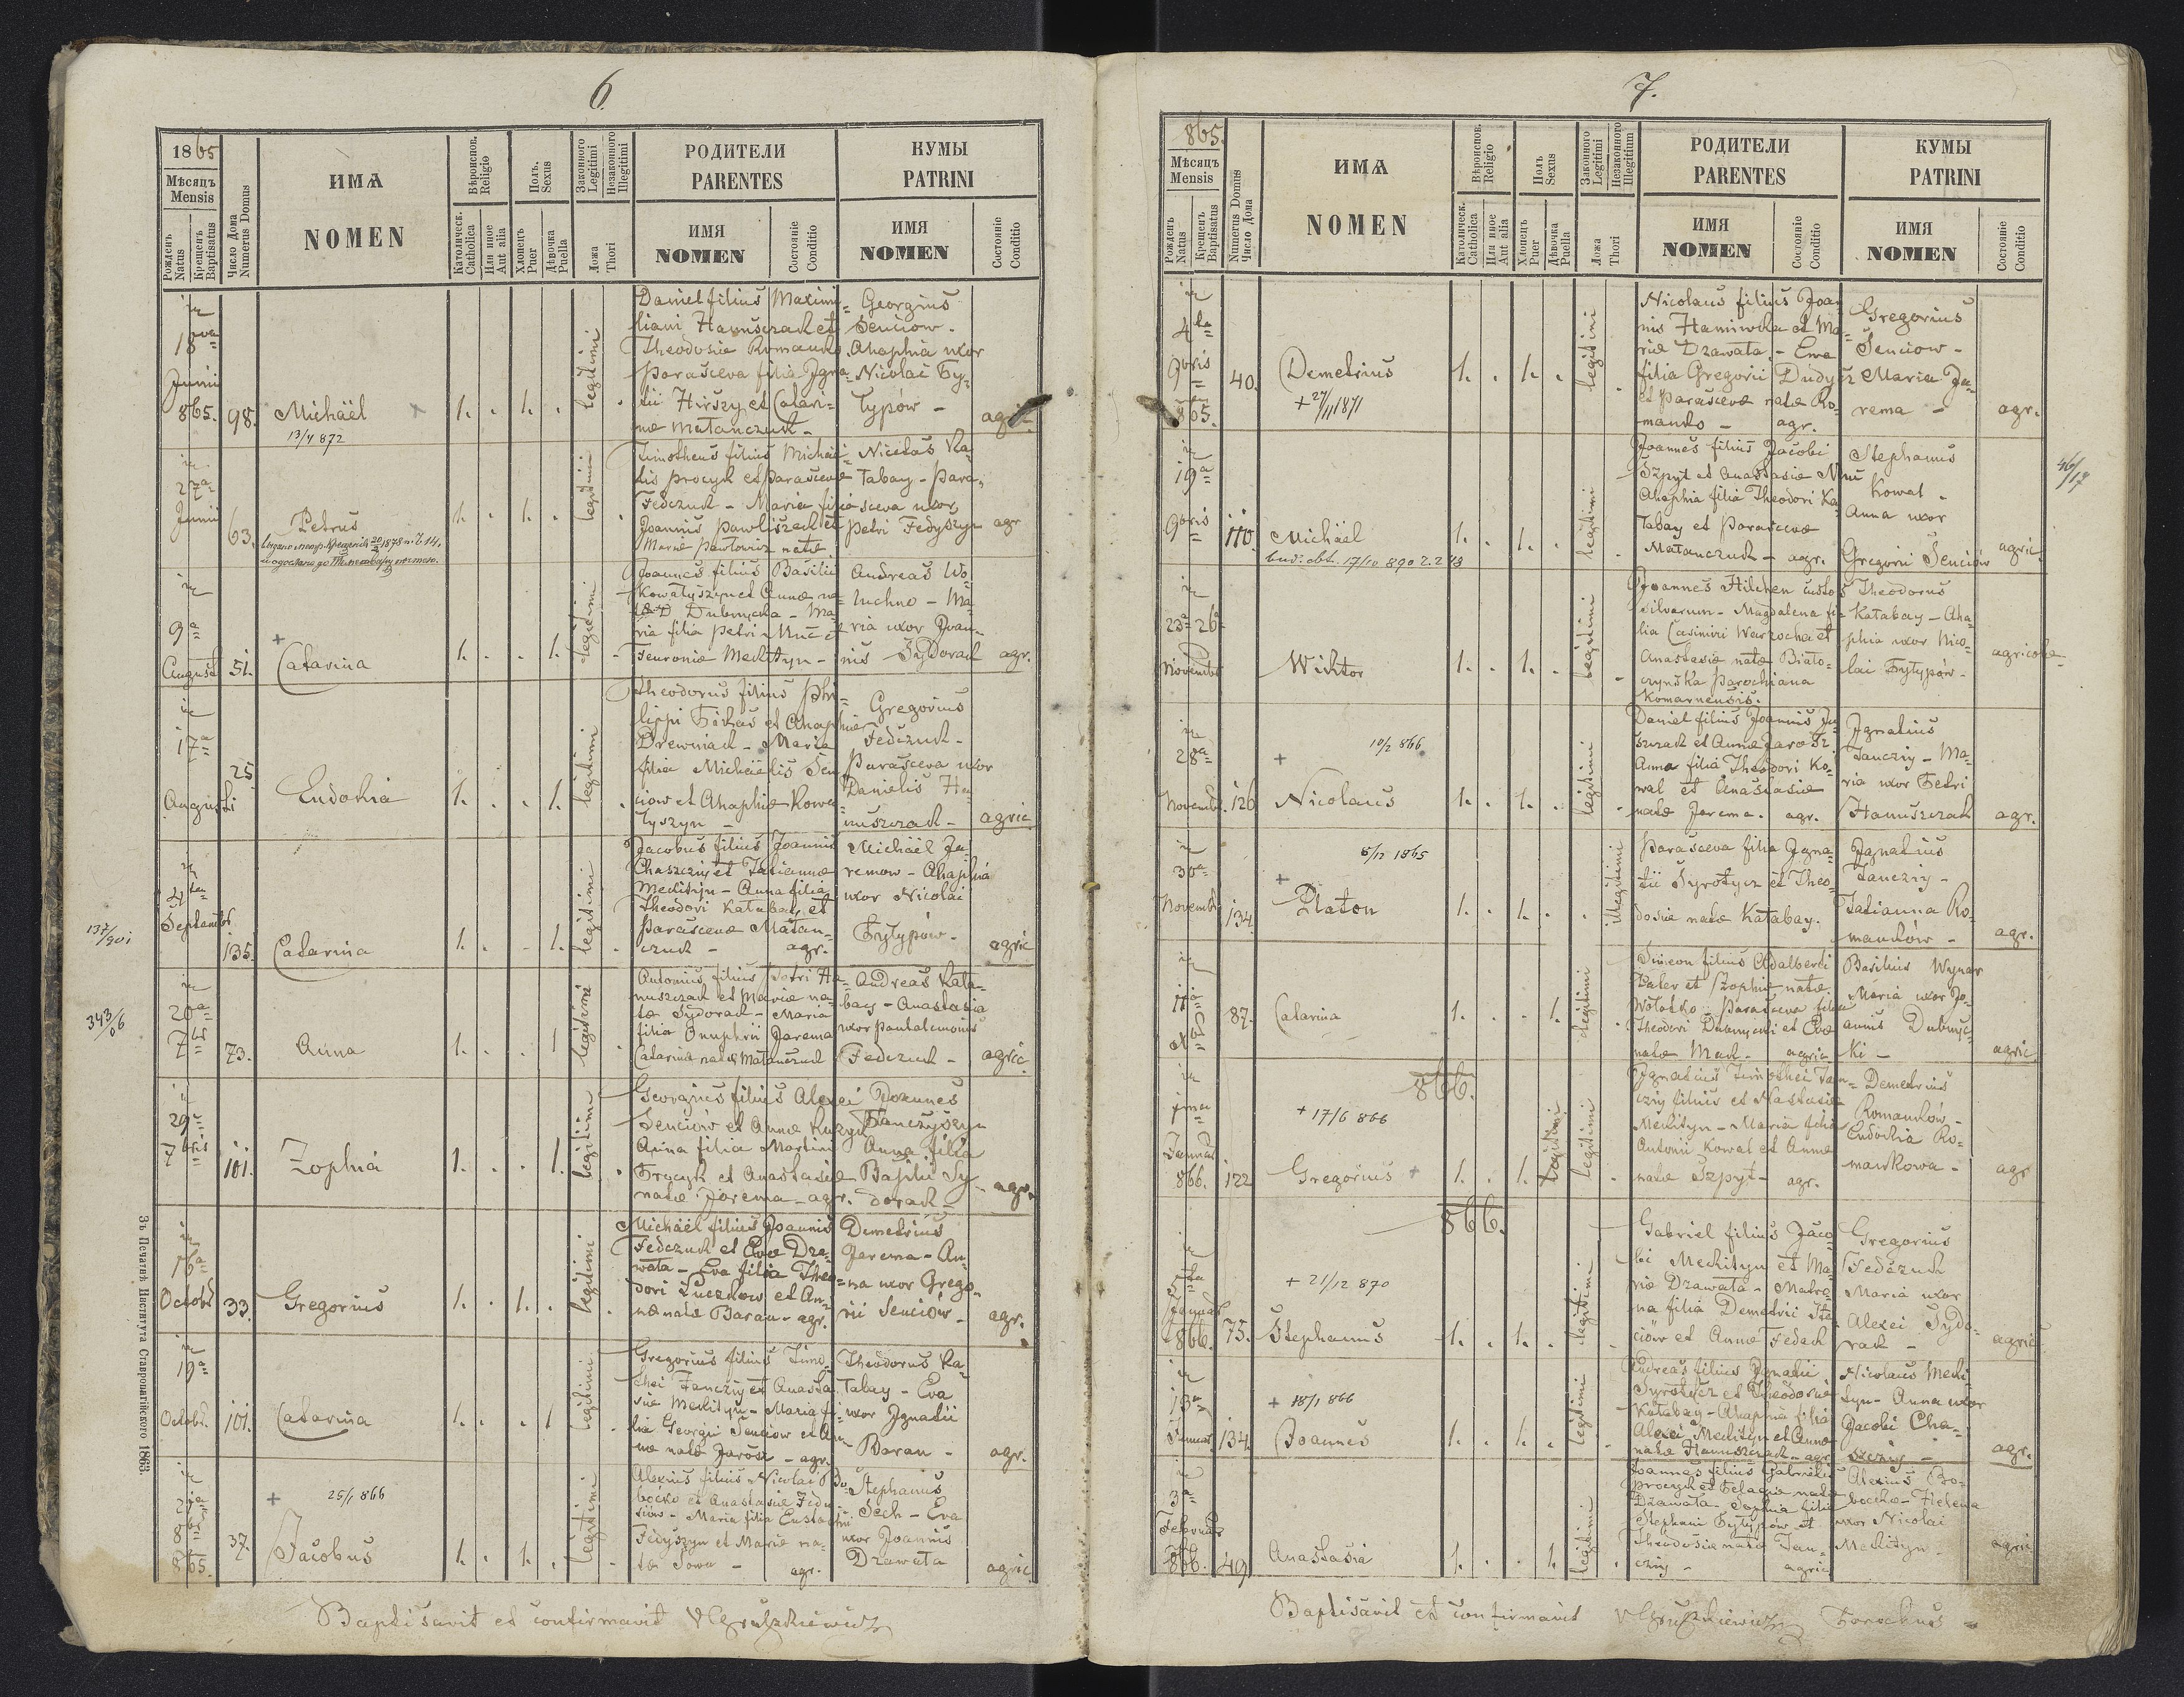 6
1865
Мѣсяцъ
Mensis
Рожденъ
Natus
Крещенъ
Baptisatus
Число Дома
Numerus Domus
ИМѦ
NOMEN
Вѣроиспов.
Religio
Католическ.
Catholica
Или иное
Aut alia
Полъ.
Sexus
Хлопецъ
Puer
Дѣвочка
Puella
Законного
Legitimi
Незаконного
Illegitimi
Ложа
Thori
РОДИТЕЛИ
PARENTES
ИМЯ
NOMEN
Состояніе
Conditio
КУМЫ
PATRINI
ИМЯ
NOMEN
Состояніе
Conditio
Junii
865. 98. Michäel 1. . 1. . legitimi
13/4 872
Daniel filius Maximi-
liani Hanuszczak et
Theodosiæ Romanko.
Parasceva filia Igna-
tii Hirszy et Catari-
næ Matanczuk -
Georgius
Senciow.
Ahaphia uxor
Nicolai Fy-
typów - agric
27a
Junii
63. Petrus 1. . 1. . legitimi
Timotheus filius Michae-
lis Procyk et Parascevæ
Fedczuk - Maria filia
Joannis Pawliszak et
Mariæ Pawlowicz natæ
Nicetas Ka-
tabay - Para-
sceva uxor
Petri Fedyszyn agr
in
9a
August 51. Catarina 1. . . 1. legitimi
Joannes filius Basilii
Kowatyszyn et Annæ na-
Dubnycka - Ma-
ria filia Petri
Fewroniæ Mechityn -
Andreas Wo-
luchno - Ma-
ria uxor Joan-
nis Sydorak agr.
in
17a
Augusti
25 Eudokia 1. . . 1. legitimi
Theodorus filius Phi-
lippi et Ahaphiæ
Drewniak - Maria
filia Michaëlis Sen-
ciow et Ahaphiæ Kowa-
tyszyn -
Gregorius
Fedczuk -
Parasceva uxor
Danielis Ha-
nuszczak - agric.
137/901
Septembr
135. Catarina 1. . . 1. legitimi
Jacobus filius Joannis
Chaszczyj et Tatiannæ
Mechityn - Anna filia
Theodori Katabay et
Parascevæ Matan-
czuk - agr.
Michäel Ja-
remow - Ahaphia
uxor Nicolai
Fytypów - agric
343/06
in
20a
7br 73. Anna 1. . . 1 legitimi
Antonius filius Petri Ha-
nuszczak et Mariæ na-
tæ Sydorak - Maria
filia Onuphrii Jarema
Catarinæ natæ Matanczuk
Andreas Kata-
bay - Anastasia
uxor Pantalemonis
Fedczuk - agric.
29a
7bris 101. Zophia 1. . . 1. legitimi
Georgius filius Alexei
Senciów et Annæ
Anna filia Martini
Procyk et Anastasiæ
natæ Jarema - agr.
Joannes
Janczyszyn
Anna filia
Basilii Sy-
dorak - agr.
in
16a
Octobr 33. Gregorius 1. . 1. . legitimi
Michäel filius Joannis
Fedczuk et Evæ Dra-
wata - Eva filia Theo-
dori Luczkow et An-
næ natæ Baran - agr.
Demetrius
Jarema - An-
na uxor Grego-
rii Senciów - agr.
in
19a
Octobr. 101. Catarina 1. . . 1 legitimi
Gregorius filius Timo-
thei Janczij et Anasta-
siæ Mechityn - Maria fi-
lia Georgii Senciow et An-
næ natæ Jarosz - agr.
Theodorus Ka-
tabay - Eva
uxor Ignatii
Baran - agr.
+ 25/1 866
865. 37. Jacobus 1. . 1. . legitimi
Alexius filius Nicolai Bo-
bocko et Anastasiæ
Maria filia Eustachii
Fedyszyn et Mariæ na-
tæ Sowa - agr.
Stephanus
Sech - Eva
uxor Joannis
Drawata agric.
Зъ Печатнѣ Института Ставропигійского 1863.
Baptisavit et confirmavit
7.
865.
Мѣсяцъ
Mensis
Рожденъ
Natus
Крещенъ
Baptisatus
Numerus Domus
Число Дома
ИМѦ
NOMEN
Вѣроиспов.
Religio
Католическ.
Catholica
Или иное
Aut alia
Полъ
Sexus
Хлопецъ
Puer
Дѣвочка
Puella
Законного
Legitimi
Незаконного
Illegitimi
Ложа
Thori
РОДИТЕЛИ
PARENTES
ИМЯ
NOMEN
Состояніе
Conditio
КУМЫ
PATRINI
ИМЯ
NOMEN
Состояніе
Conditio
in
4ta
9bris
865. 40. Demetrius 1. . 1. . legitimi
+ 27/11 1871
Nicolaus filius Joan-
nis Haniwka et Ma-
riæ Drawata - Eva
filia Gregorii Dudycz
et Parascevæ natæ Ro-
manko - agr.
Gregorius
Senciow -
Maria Ja-
rema - agr.
46/17
in
19a
9bris 110. Michäel 1. . 1. . legitimi
Joannes filius Jacobi
Szpyt et Anastasiæ
Ahaphia filia Theodori Ka-
tabay et Parascevæ
Matanczuk - agr.
Stephanus
Kowal -
Anna uxor
Gregorii Senciów agric.
in
23a 26a
Novembr Wiktor 1. . 1. . legitimi
Joannes Hilchen custos
silvarum - Magdalena fi-
lia Casimiri Warzocha et
Anastasiæ natæ Biato-
czynska Parochiana
Komarnensis.
Theodorus
Katabay - Aha-
phia uxor Nico-
lai Fytypów - agricolæ
in
28a
+ 10/2 866
Novembr. 126 Nicolaus 1. . 1. . legitimi
Daniel filius Joannis
et Annæ Jarosz
Anna filia Theodori Ko-
wal et Anastasiæ
natæ Jarema. agr.
Ignatius
Janczij - Ma-
ria uxor Petri
Hanuszczak agr.
in
30a
+ 5/12 1865
Novembr 134. Platon 1. . 1. . illegitimi
Parasceva filia Igna-
tii Syrotycz et Theo-
dosiæ natæ Katabay.
Ignatius
Janczij -
Tatianna Ro-
manków - agr.
in
87. Catarina 1. . . 1. legitimi
Simeon filius Adalberti
et Zophiæ natæ
Parasceva filia
Theodori Dubnycki et Evæ
natæ Mach - agric
Basilius Wynar
Maria uxor Jo-
annis Dubnyc-
ki - agric.
866.
in
+ 17/6 866
Januar
866. 122 Gregorius + 1. . 1. legitimi legitimi
Ignatius Timothei Jan-
czij filius et Nastasiæ
Mechityn - Maria filia
Antonii Kowal et Annæ
natæ Szpyt - agr.
Demetrius
Romanków -
Eudockia Ro-
mankowa - agr
866.
in
5ta
+ 21/12 870
Januar
866. 75. Stephanus 1. . 1. . legitimi
Gabriel filius Jaco-
bi Mechityn et Ma-
riæ Drawata - Matro-
na filia Demetrii Ste-
ciów et Annæ Fedak
Gregorius
Fedczuk
Maria uxor
Alexei Sydo-
rak - agric
in
13a
+ 18/1 866
Januar 134. Joannes 1. . 1. . legitimi
Andreas filius Ignatii
Syrotycz et Theodosiæ
Katabay - Ahaphia filia
Alexei Mechityn et Annæ
natæ Hanuszczak - agr
Nicolaus Mechi-
tyn - Anna uxor
Jacobi Cha-
szczij - agr.
in
3a
Februar
866. 49 Anastasia 1. . . 1. legitimi
Joannes filius Gabrielis
Procyk et Pelagiæ natæ
Drawata - Sophia filia
Stephani Fytypów et
Theodosiæ natæ Jan-
czij - agric.
Alexius Bo-
bocko - Helena
uxor Nicolai
Mechityn - agric
Baptisavit et confirmavit